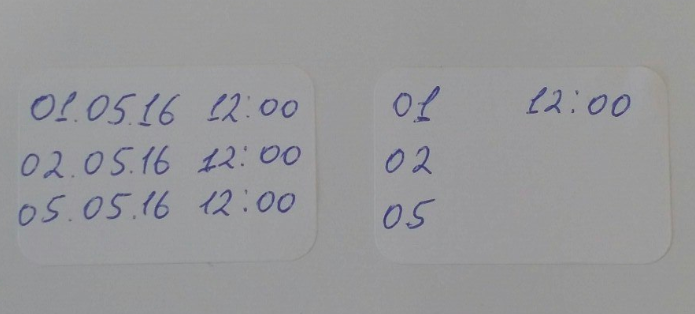 01.05.16 12:00
02.05.16 12:00
05.05.16 12:00
01 12:00
02
05